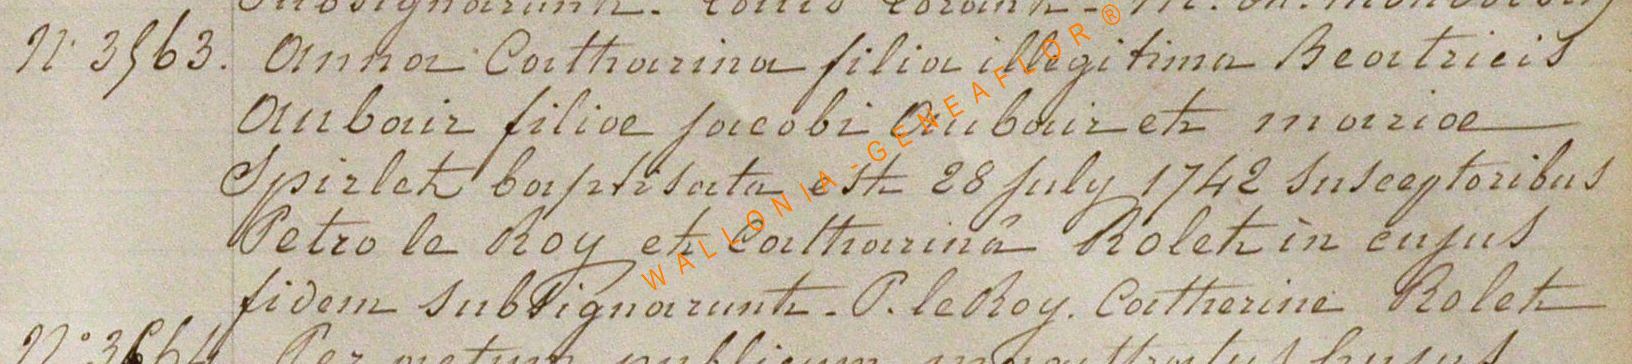 subsignarunt. Louis
N° 3563. Anna Catharina filia illegitima Beatricis
Aubair filiae jacobi Aubair et mariae
Spirlet baptisata est 28 july 1742 susceptoribus
Petro le Roy et Catharinâ Rolet in cujus
fidem subsignarunt. P. le Roy. Catherine Rolet
N° 3564 Per actum publicum magistratus hujus
WALLONIA-GENEAFLOR®